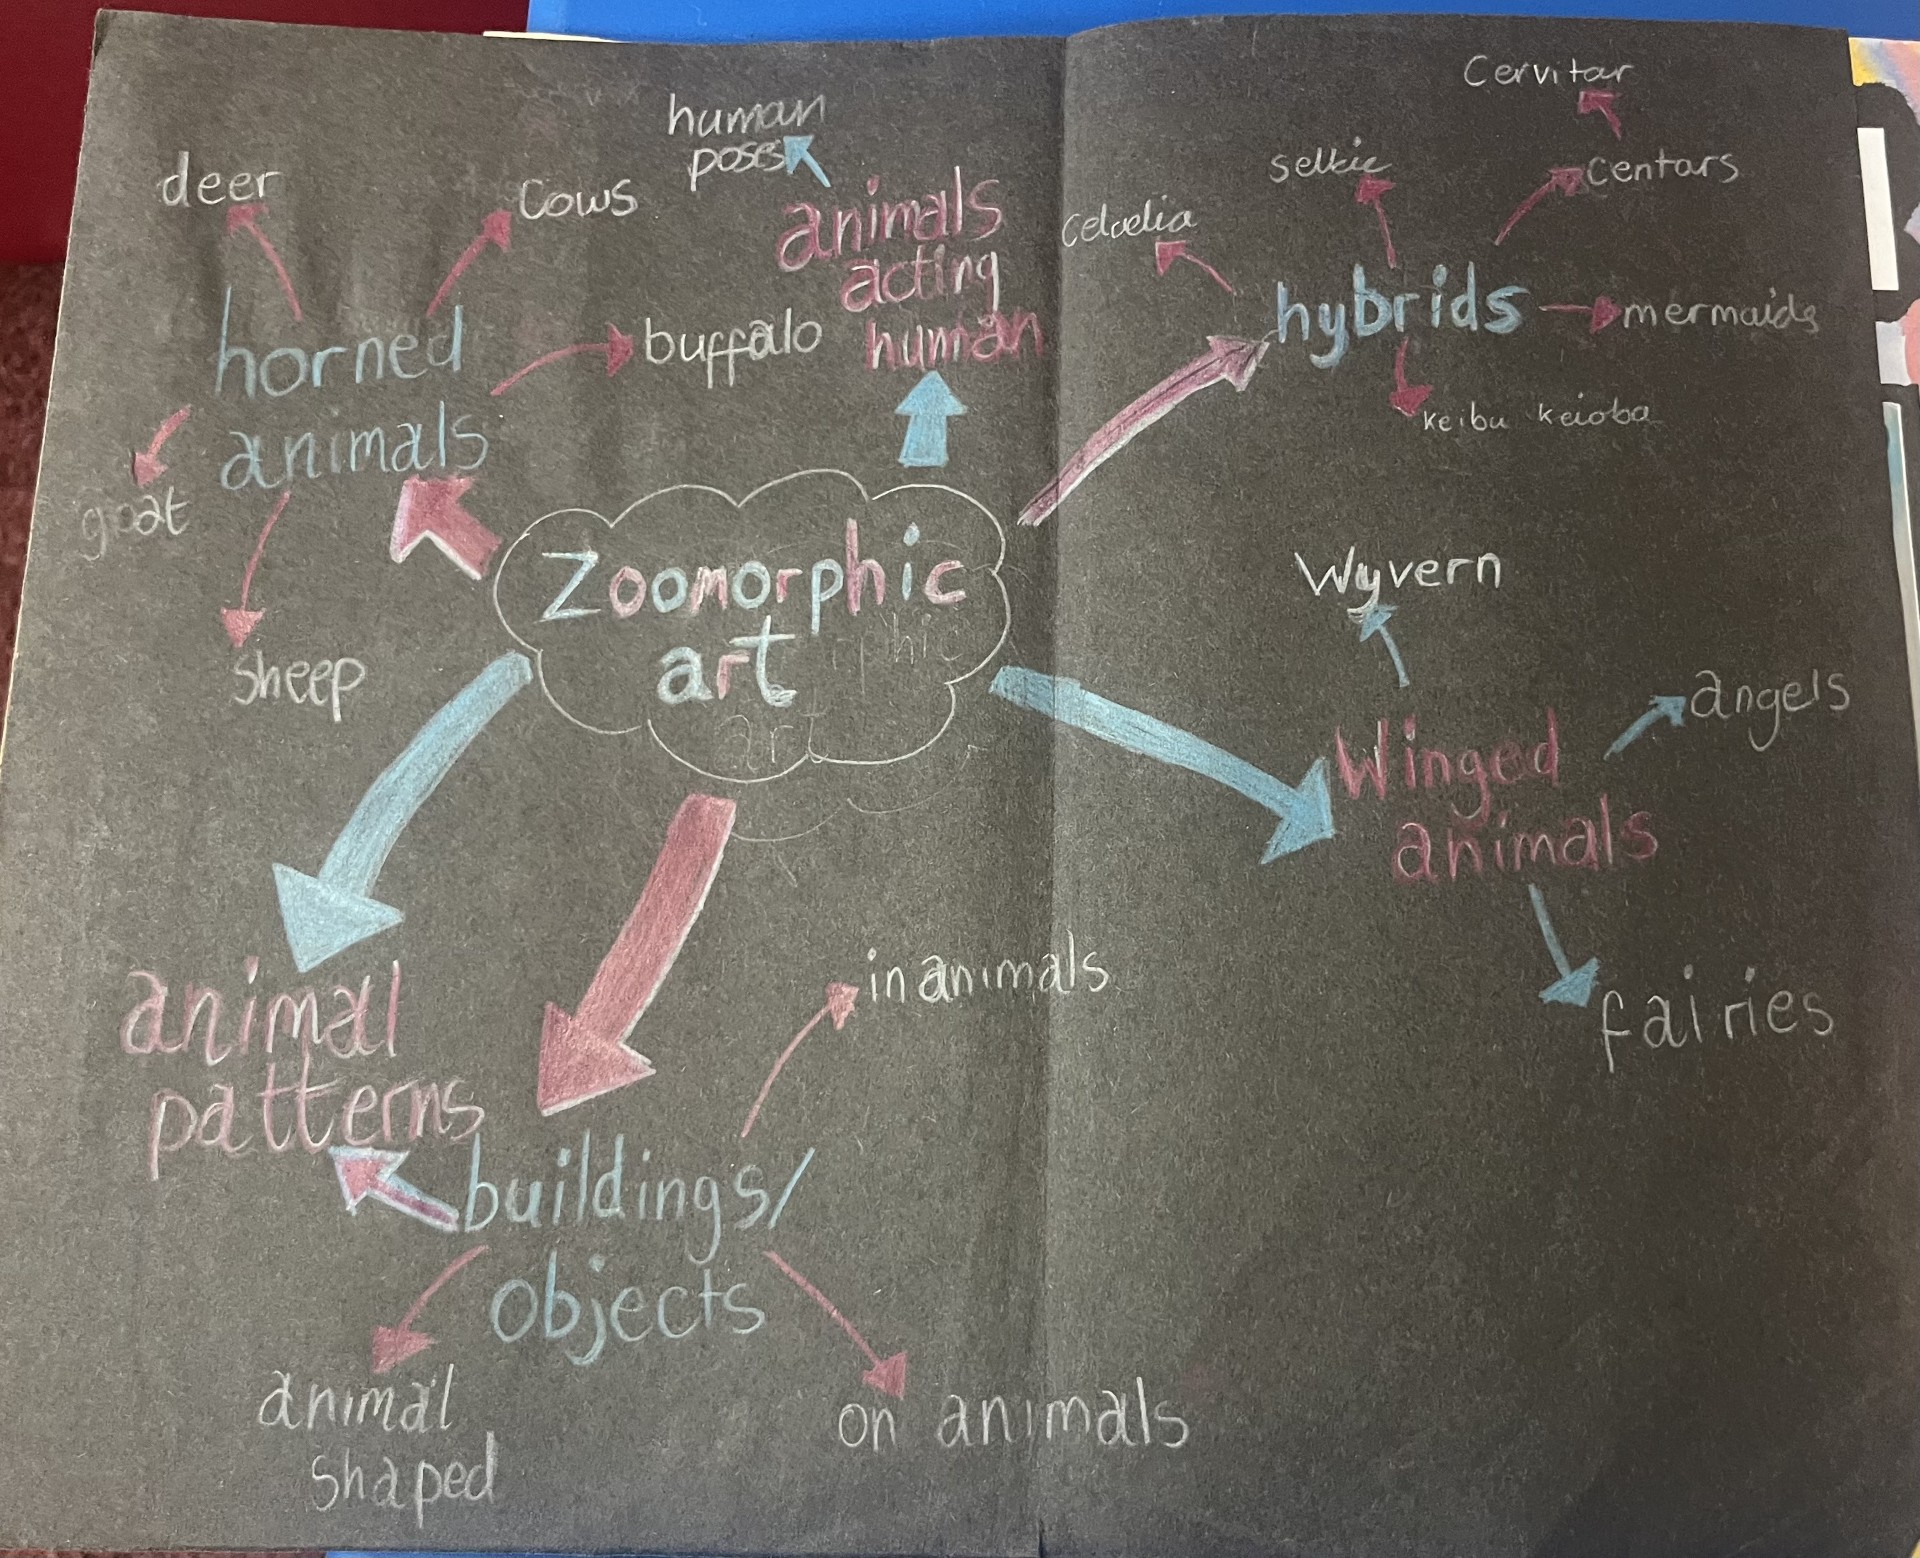 Zoomorphic
art
horned
animals
deer
cows
buffalo
goat
sheep
animals
acting
human
human
poses
hybrids
selkie
centars
Cervitar
mermaids
keibu keioba
Winged
animals
Wyvern
angels
fairies
buildings/
objects
in animals
on animals
animal
shaped
animal
patterns